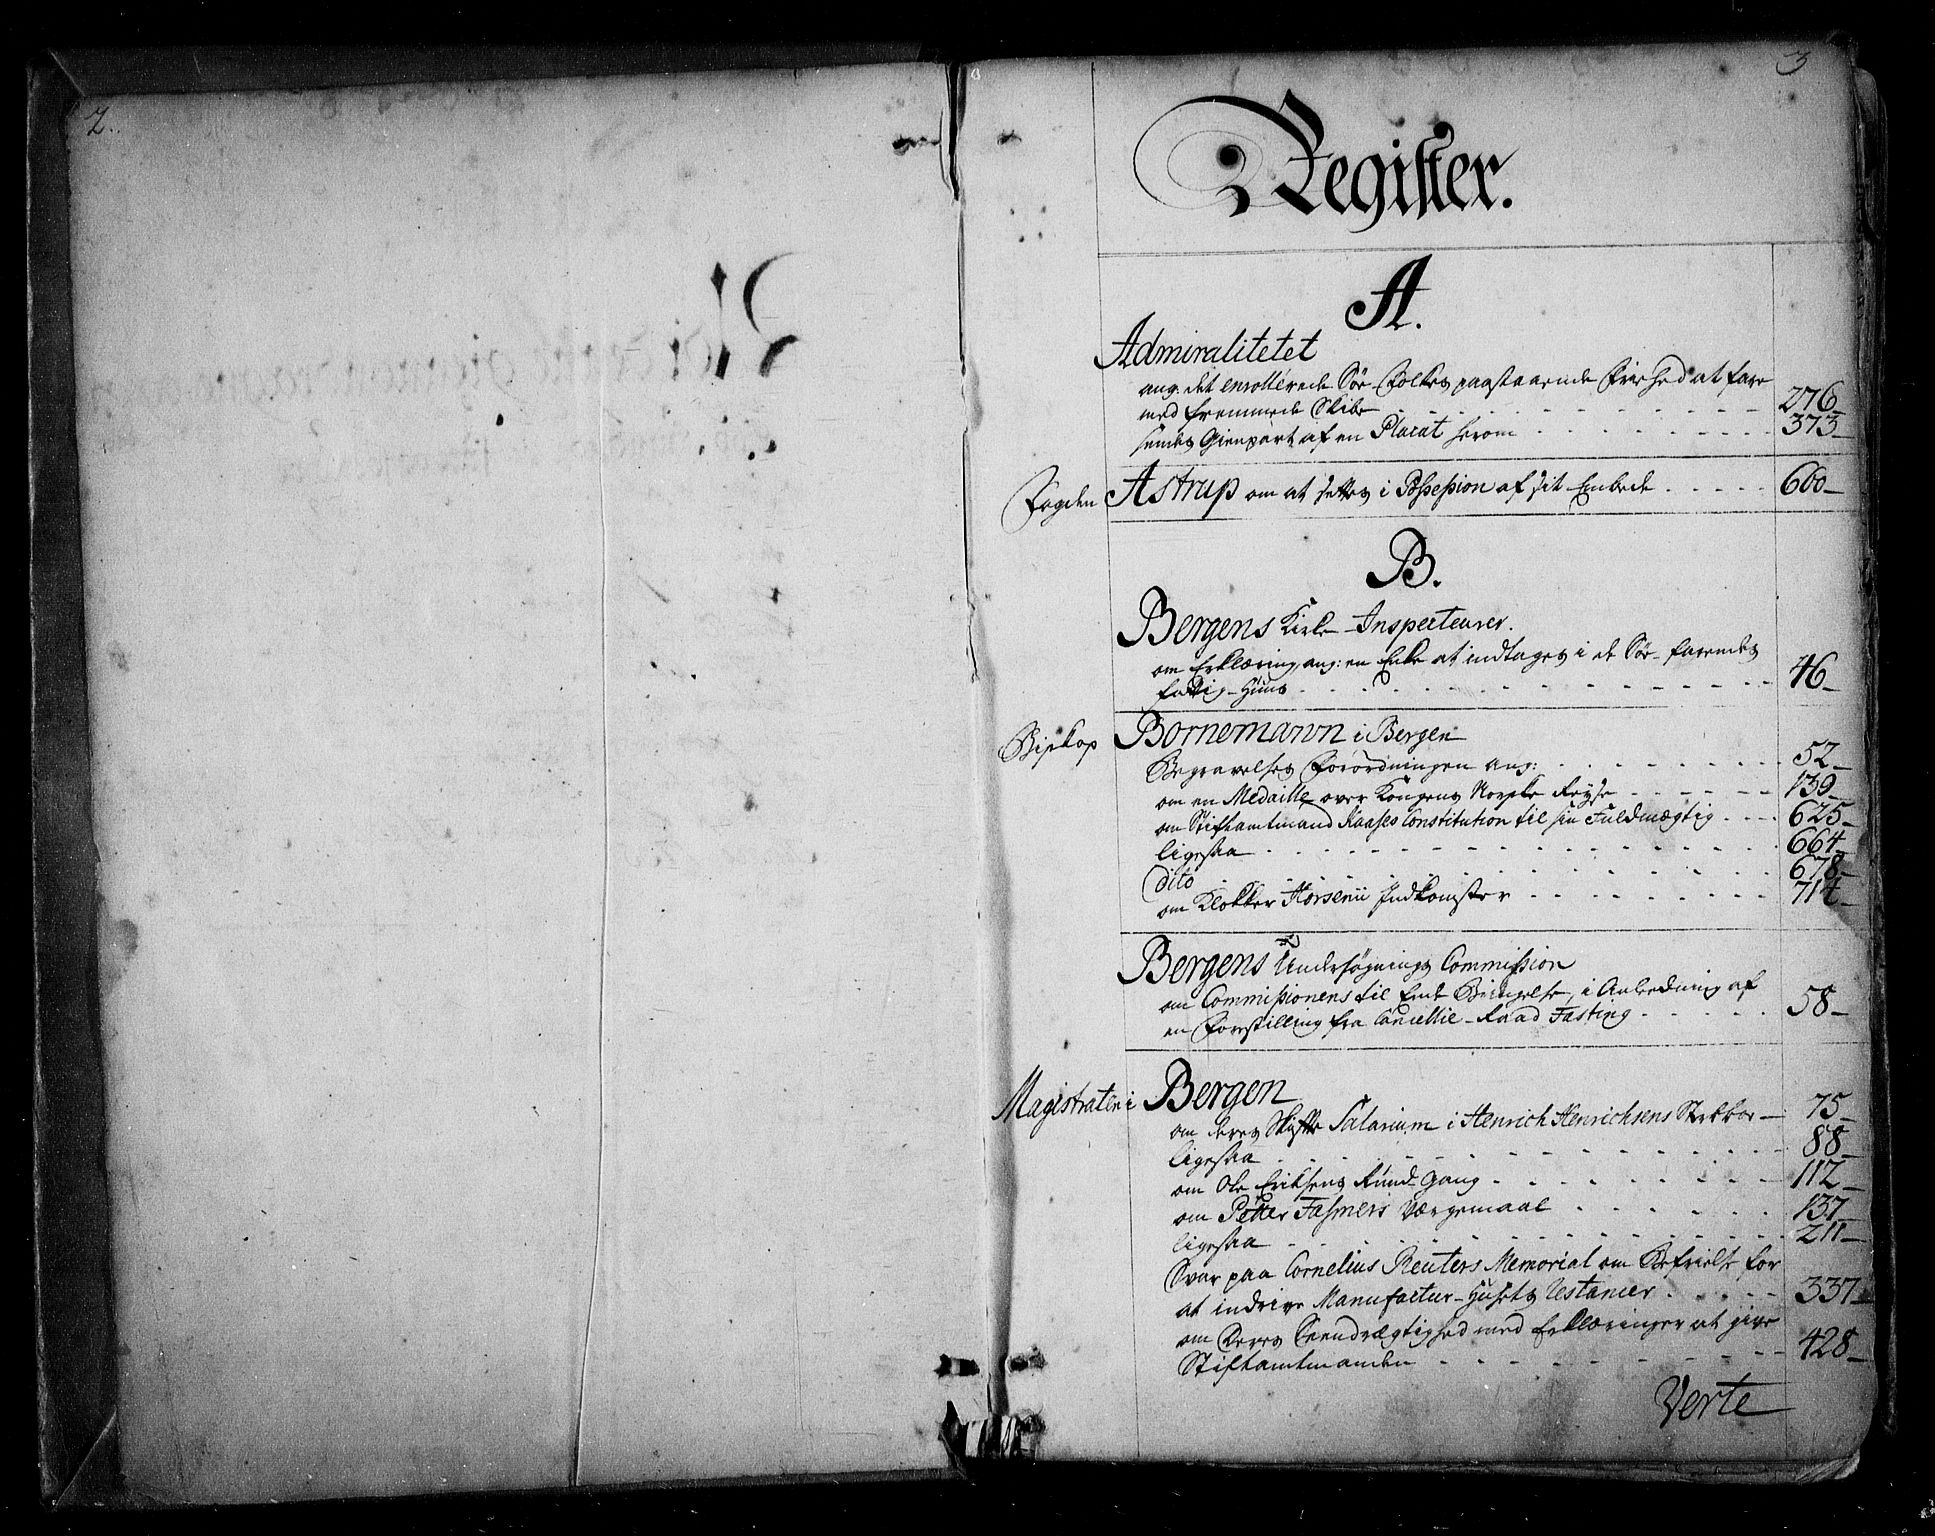 2.
3
Register.
A.
Admiralitetet
ang: det enrollerede Søe-Folkes paastaaende Friehed at fare
med fremmede Skibe 276
sendes Gienpart af en Placat herom 373
Fogden Astrup om at settes i Possession af sit Embede 660
B.
Bergens Kirke-Inspecteurer.
om Erklæring ang: en Enke at indtages i de Søe-farendes
Fattig-Huus 46
Biskop Bornemann i Bergen
Begravelses Forordningen ang: 52
om en Medaille over Kongens Norske Reyse 139
om Stiftamtmand Kaases Constitution til sin Fuldmægtig 625
ligesaa 664
dito 678
om Klokker Horsenii Indkomster 714
Bergens Undersøgnings Commission
om Commissionens til Ende Bringelse, i Anledning af
en Forestilling fra Cancellie-Raad Fasting 58
Magistraten i Bergen
om deres Skifte Salarium i Henrich Henrichsens Sterkboe 75
ligesaa 88
om Ole Eriksens Rund-gang 112
om Petter Fasmers Værgemaal 137
ligesaa 211
Svar paa Cornelius Reuters Memorial om Befrielse for
at indrive Manufactur-Husets Restancier 337
om Deres Seendrægtighed med Erklæringer at give
Stiftamtmanden 428
Verte